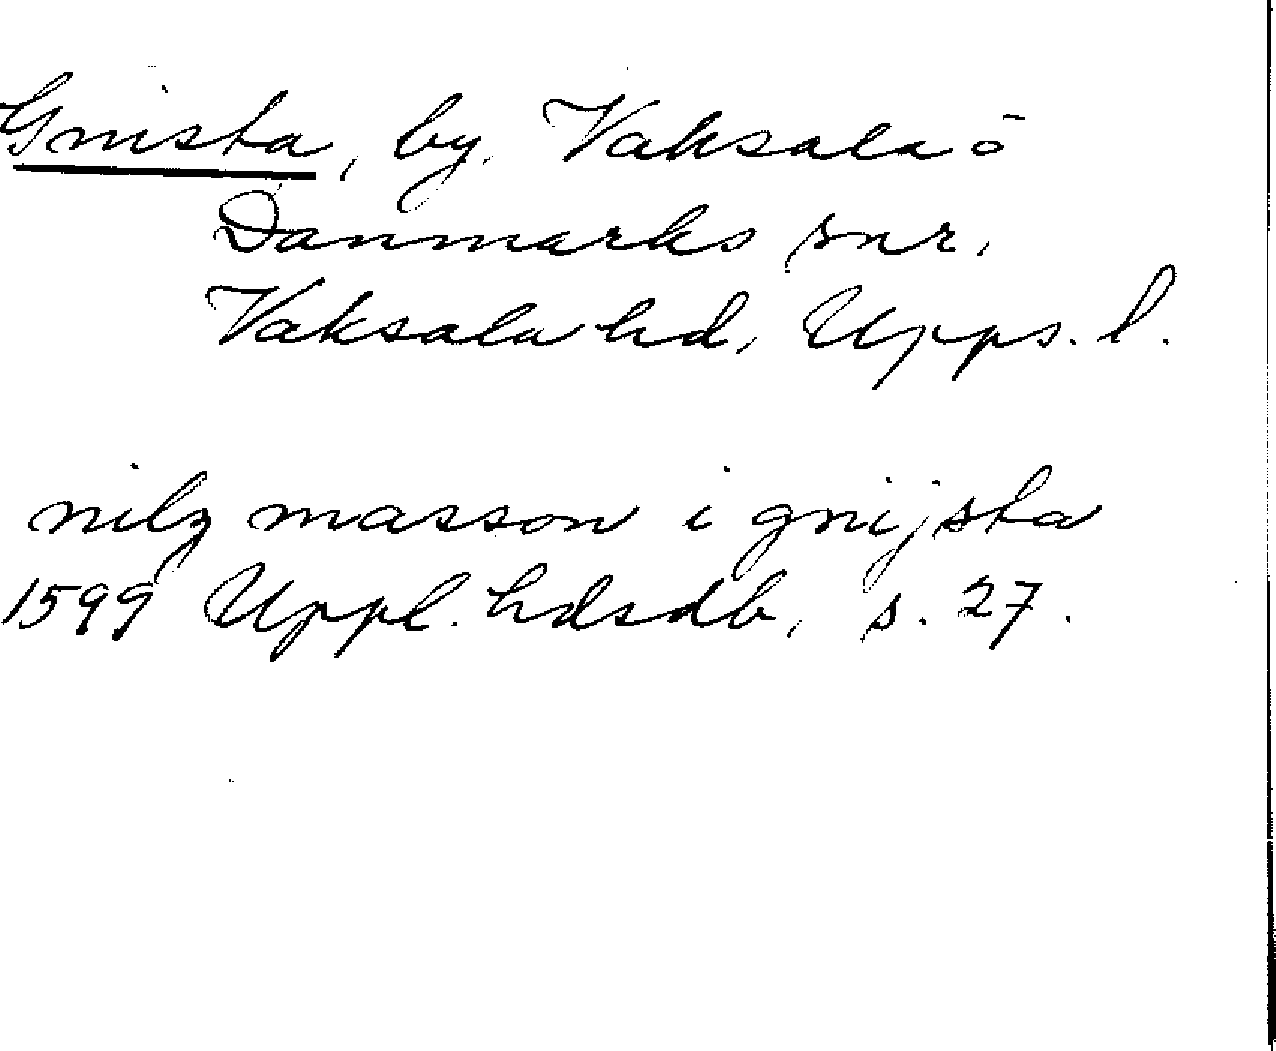 Gnista, by, Vaksala o
Danmarks snr,
Vaksala hd, Upps. l.
nilz masson i gnijsta
1599 Uppl. hdsdb, s. 27.